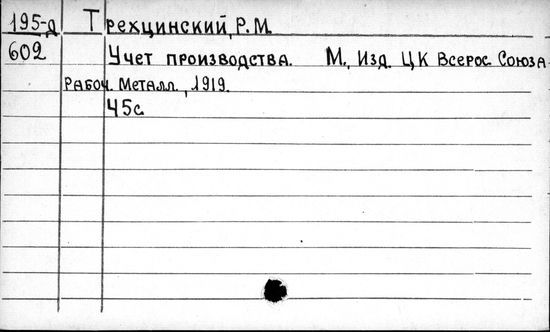 195-д Трехцинский, Р.М.
602 Учет производства. М., Изд. ЦК Всерос. Союза
рабоч. Металл., 1919.
45с.